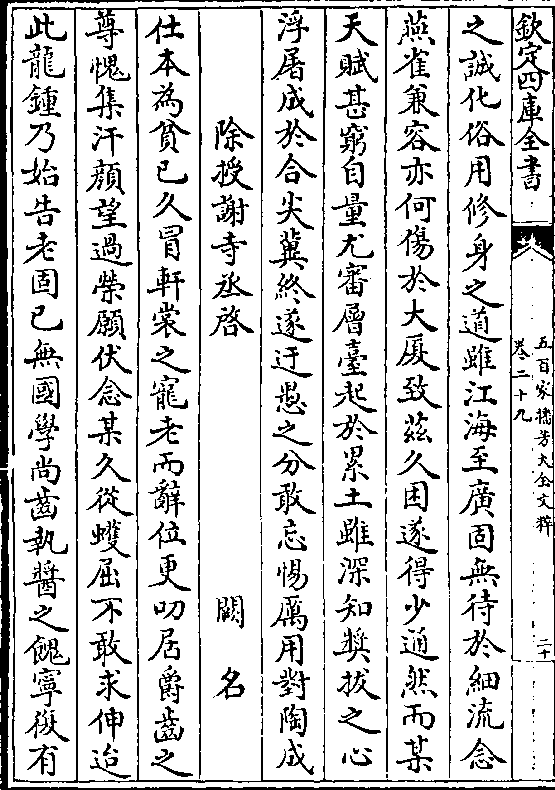 欽定四庫全書
五百家播芳大全文粹
卷二十九
二十
之誠化俗用修身之道雖江海至廣固無待於細流念
燕雀兼容亦何傷於大厦致兹久困遂得少通然而某
天賦甚窮自量尤審層臺起於累土雖深知奬拔之心
浮屠成於合尖冀終遂迂愚之分敢忘惕厲用對陶成
除授謝寺丞啓 闕名
仕本為貧已久冒軒裳之寵老而辭位更叨居爵齒之
尊愧集汗顔望過榮願伏念某久從蠖屈不敢求伸迨
此龍鍾乃始告老固已無國學尚齒執醬之餽寧復有